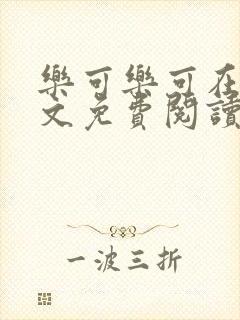 樂可樂可在
文免費閱讀
一波三折